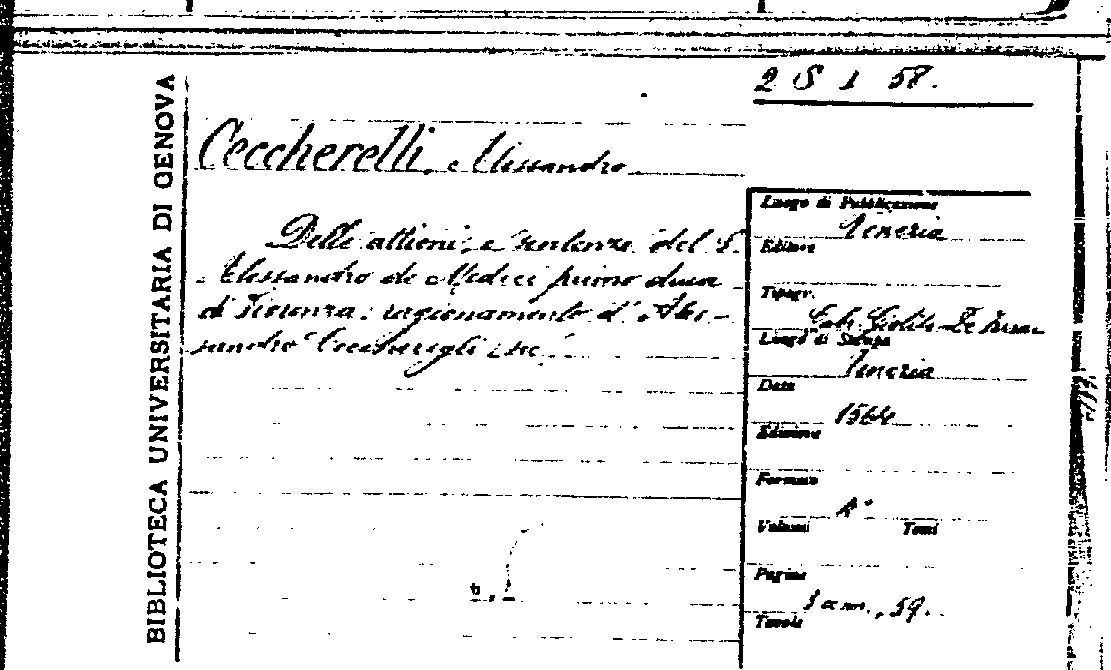 BIBLIOTECA UNIVERSITARIA DI GENOVA
2 S I 58.
Ceccherelli, Alessandro
Delle attioni, e sentenze del S.
Alessandro de Medici primo duca
di Fiorenza. ragionamento d'Ales-
sandro Ceccheregli
Luogo di Pubblicazione
Venezia
Editore
Tipogr.
Gab. Giolito De Ferrari
Luogo di Stampa
Venezia
Data
1564
Edizione
Formato
Volumi Tomi
Pagine
59.
Tavole